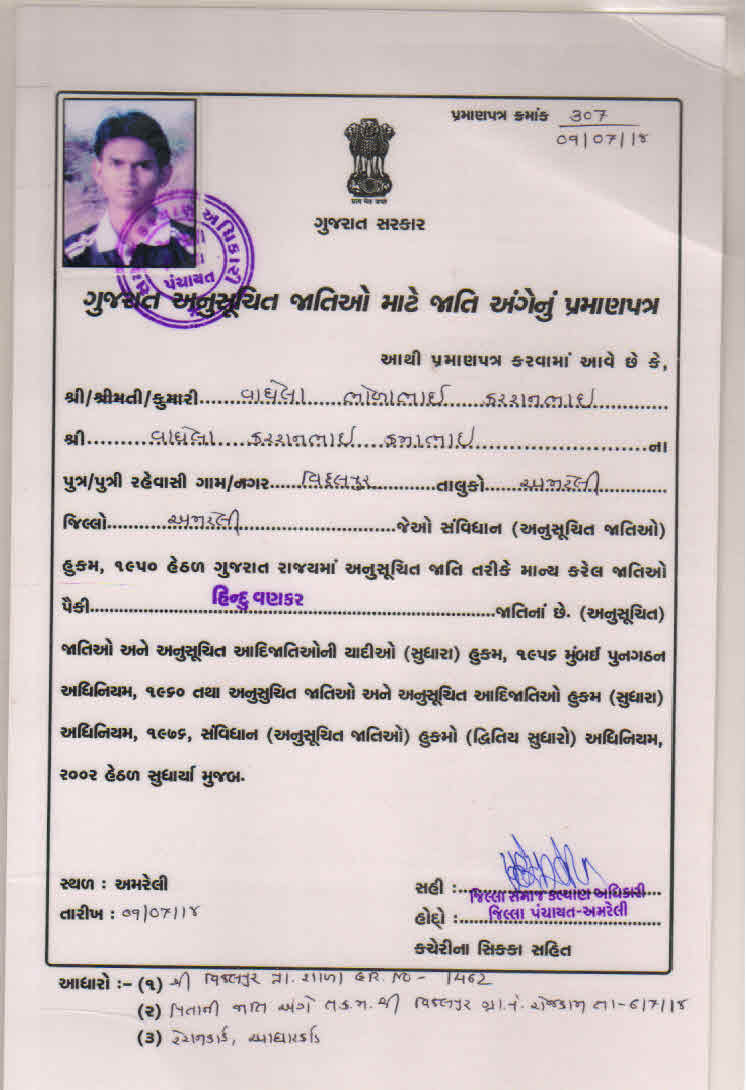 પ્રમાણપત્ર ક્રમાંક 307
09/07/18
ગુજરાત સરકાર
કલ્યાણ અધિકારી
પંચાયત
ગુજરાત અનુસૂચિત જાતિઓ માટે જાતિ અંગેનું પ્રમાણપત્ર
આથી પ્રમાણપત્ર કરવામાં આવે છે કે,
શ્રી/શ્રીમતી/કુમારી.....વાઘેલા ભોળાભાઈ કરશનભાઈ
શ્રી.........વાઘેલા કરશનભાઈ કમાભાઈ.........ના
પુત્ર/પુત્રી રહેવાસી ગામ/નગર.....વિઠ્ઠલપુર.....તાલુકો.....અમરેલી.....
જિલ્લો.........અમરેલી.........જેઓ સંવિધાન (અનુસૂચિત જાતિઓ)
હુકમ, ૧૯૫૦ હેઠળ ગુજરાત રાજયમાં અનુસૂચિત જાતિ તરીકે માન્ય કરેલ જાતિઓ
પૈકી.........હિન્દુ વણકર.........જાતિનાં છે. (અનુસૂચિત)
જાતિઓ અને અનુસૂચિત આદિજાતિઓની યાદીઓ (સુધારા) હુકમ, ૧૯૫૬ મુંબઈ પુનગઠન
અધિનિયમ, ૧૯૬૦ તથા અનુસુચિત જાતિઓ અને અનુસૂચિત આદિજાતિઓ હુકમ (સુધારા)
અધિનિયમ, ૧૯૭૬, સંવિધાન (અનુસૂચિત જાતિઓ) હુકમો (દ્વિતિય સુધારો) અધિનિયમ,
૨૦૦૨ હેઠળ સુધાર્યા મુજબ.
સ્થળ : અમરેલી
સહી :
જિલ્લા સમાજ કલ્યાણ અધિકારી
તારીખ : 09/07/18
હોદ્દો :
જિલ્લા પંચાયત-અમરેલી
કચેરીના સિક્કા સહિત
આધારો :- (૧) શ્રી વિઠ્ઠલપુર પ્રા. શાળા G.R. NO - 1462
(૨) પિતાની જાતિ અંગે ત.ક.મ. શ્રી વિઠ્ઠલપુર ગ્રા.પં. રોજકામ તા-6/7/18
(૩) રેશનકાર્ડ, આધારકાર્ડ